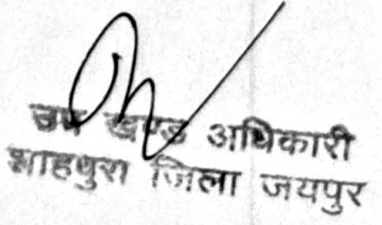 उप खण्ड अधिकारी
शाहपुरा जिला जयपुर